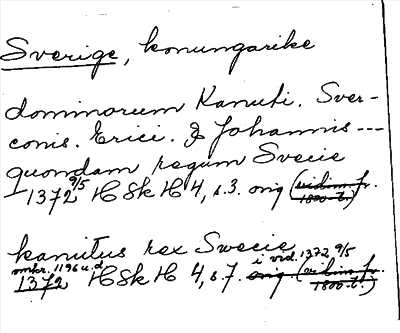 Sverige, konungarike
dominorum Kanuti. Sver-
conis. Erici. & Johannis ---
quondam regum Svecie
1372 9/5 HSH H 4, s. 3. orig (vidim. fr. 1800-t.)
kanutus rex Svecie
omkr. 1196 u.d. i vid. 1372 9/5
1372 HSH H 4, s. 7. orig. (vidim. fr. 1800-t.)